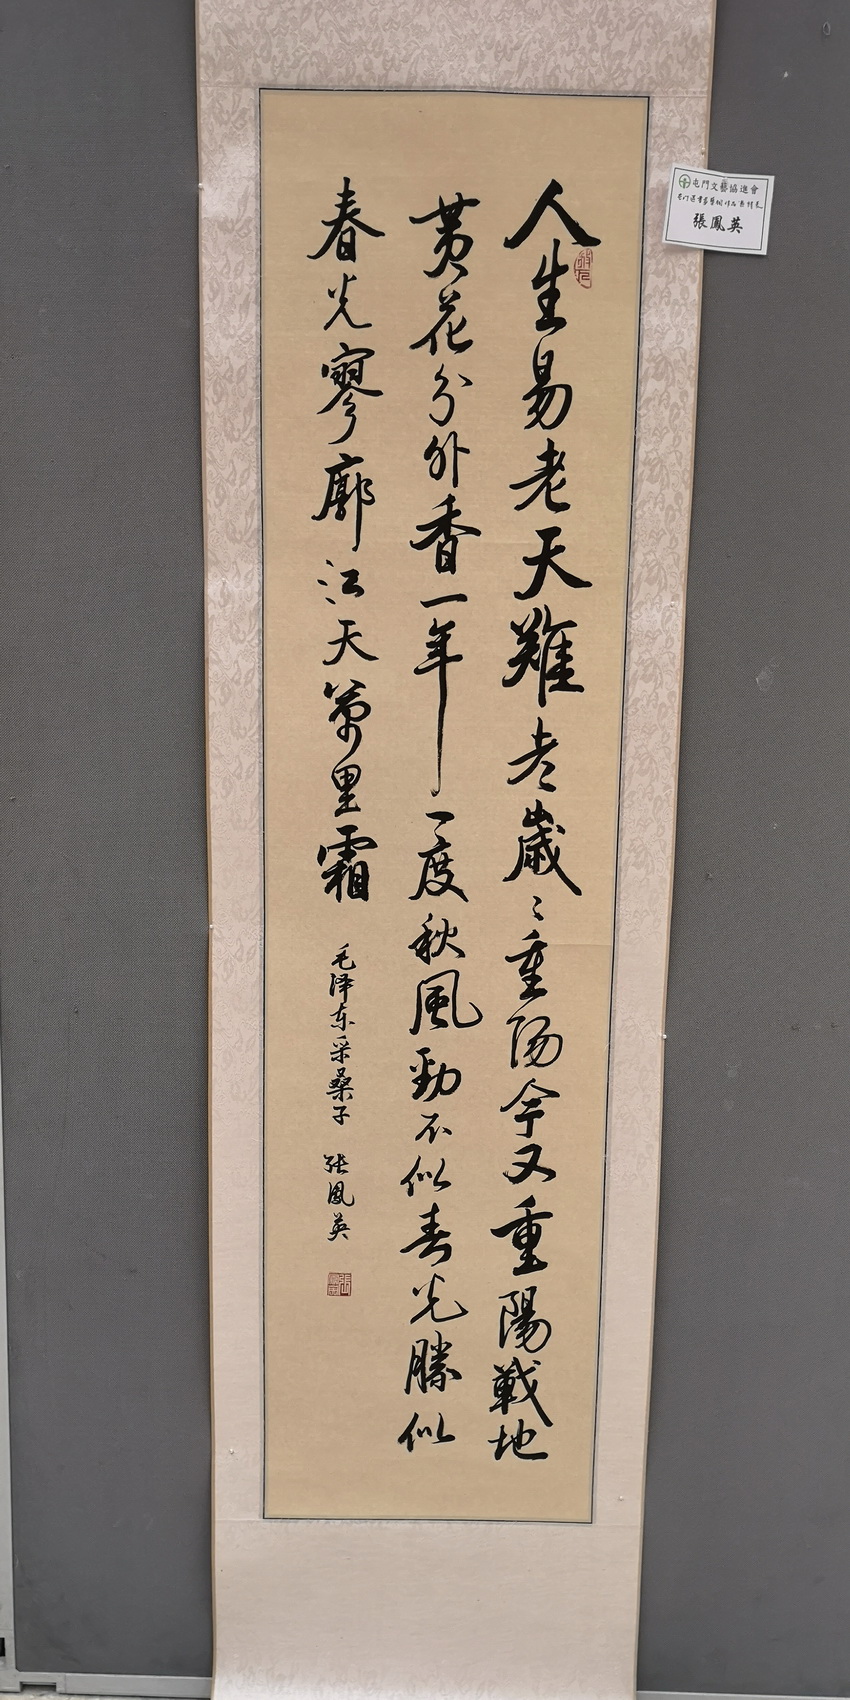 人生易老天難老歲々重陽今又重陽戰地
黄花分外香一年一度秋風勁不似春光勝似
春光寥廓江天萬里霜
毛泽东采桑子 张鳳英
屯門文藝協進會
張鳳英